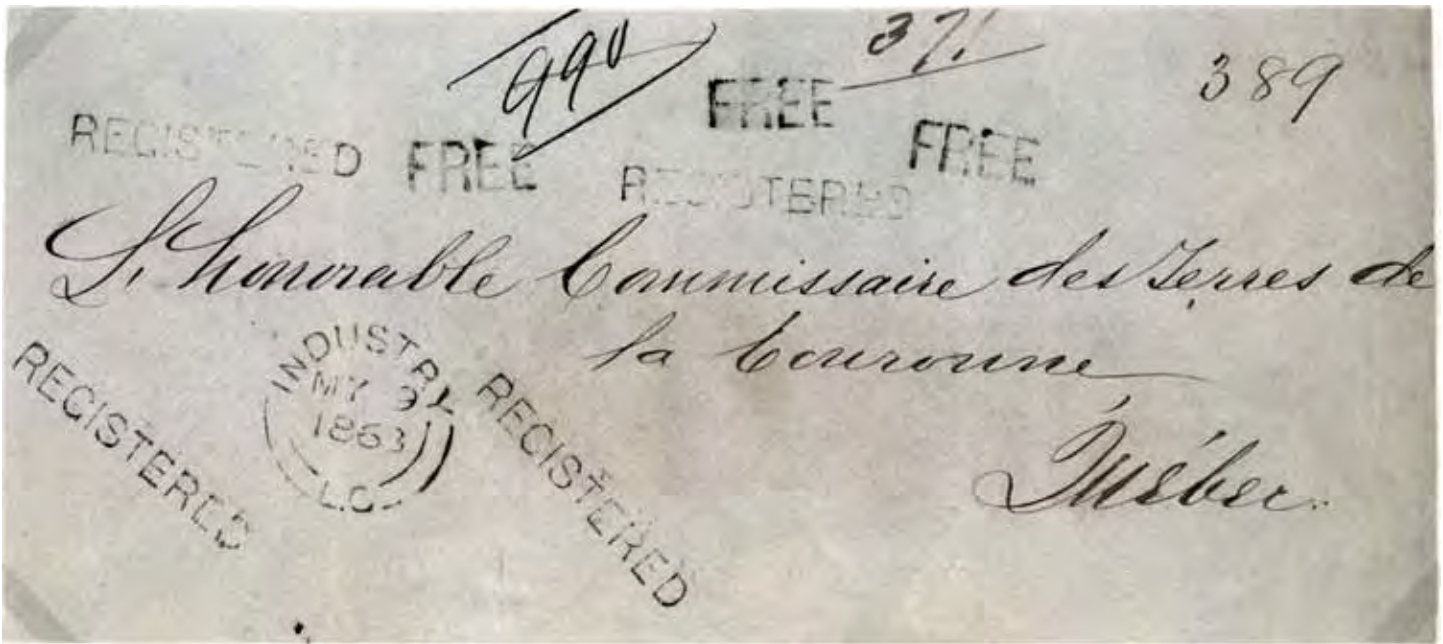 990
371
389
FREE
REGISTERED FREE FREE
REGISTERED
L'honorable Commissaire des Terres de
la Couronne
Québec
INDUSTRY
MY 9
1863
L.C.
REGISTERED
REGISTERED